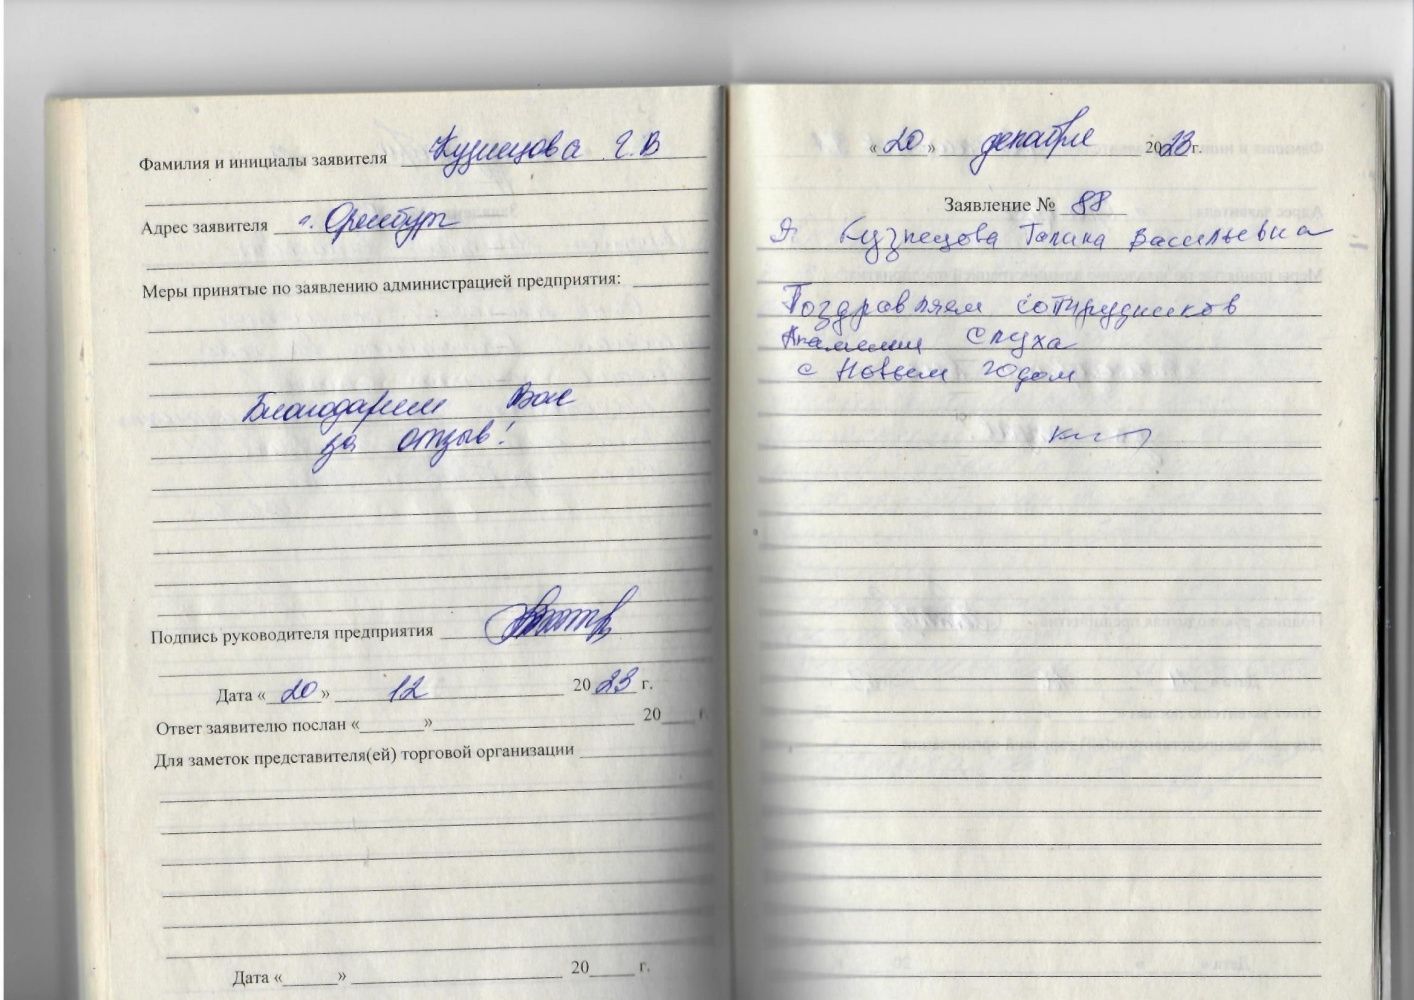 Фамилия и инициалы заявителя Кузнецова Г.В
Адрес заявителя г. Оренбург
Меры принятые по заявлению администрацией предприятия:
Благодарим Вас
за отзыв!
Подпись руководителя предприятия
Дата «20» 12 2023 г.
Ответ заявителю послан «» 20 г.
Для заметок представителя(ей) торговой организации
Дата «» 20 г.
«20» декабря 2023г.
Заявление № 88
Я Кузнецова Галина Васильевна
Поздравляем сотрудников
Академии Слуха
с Новым годом